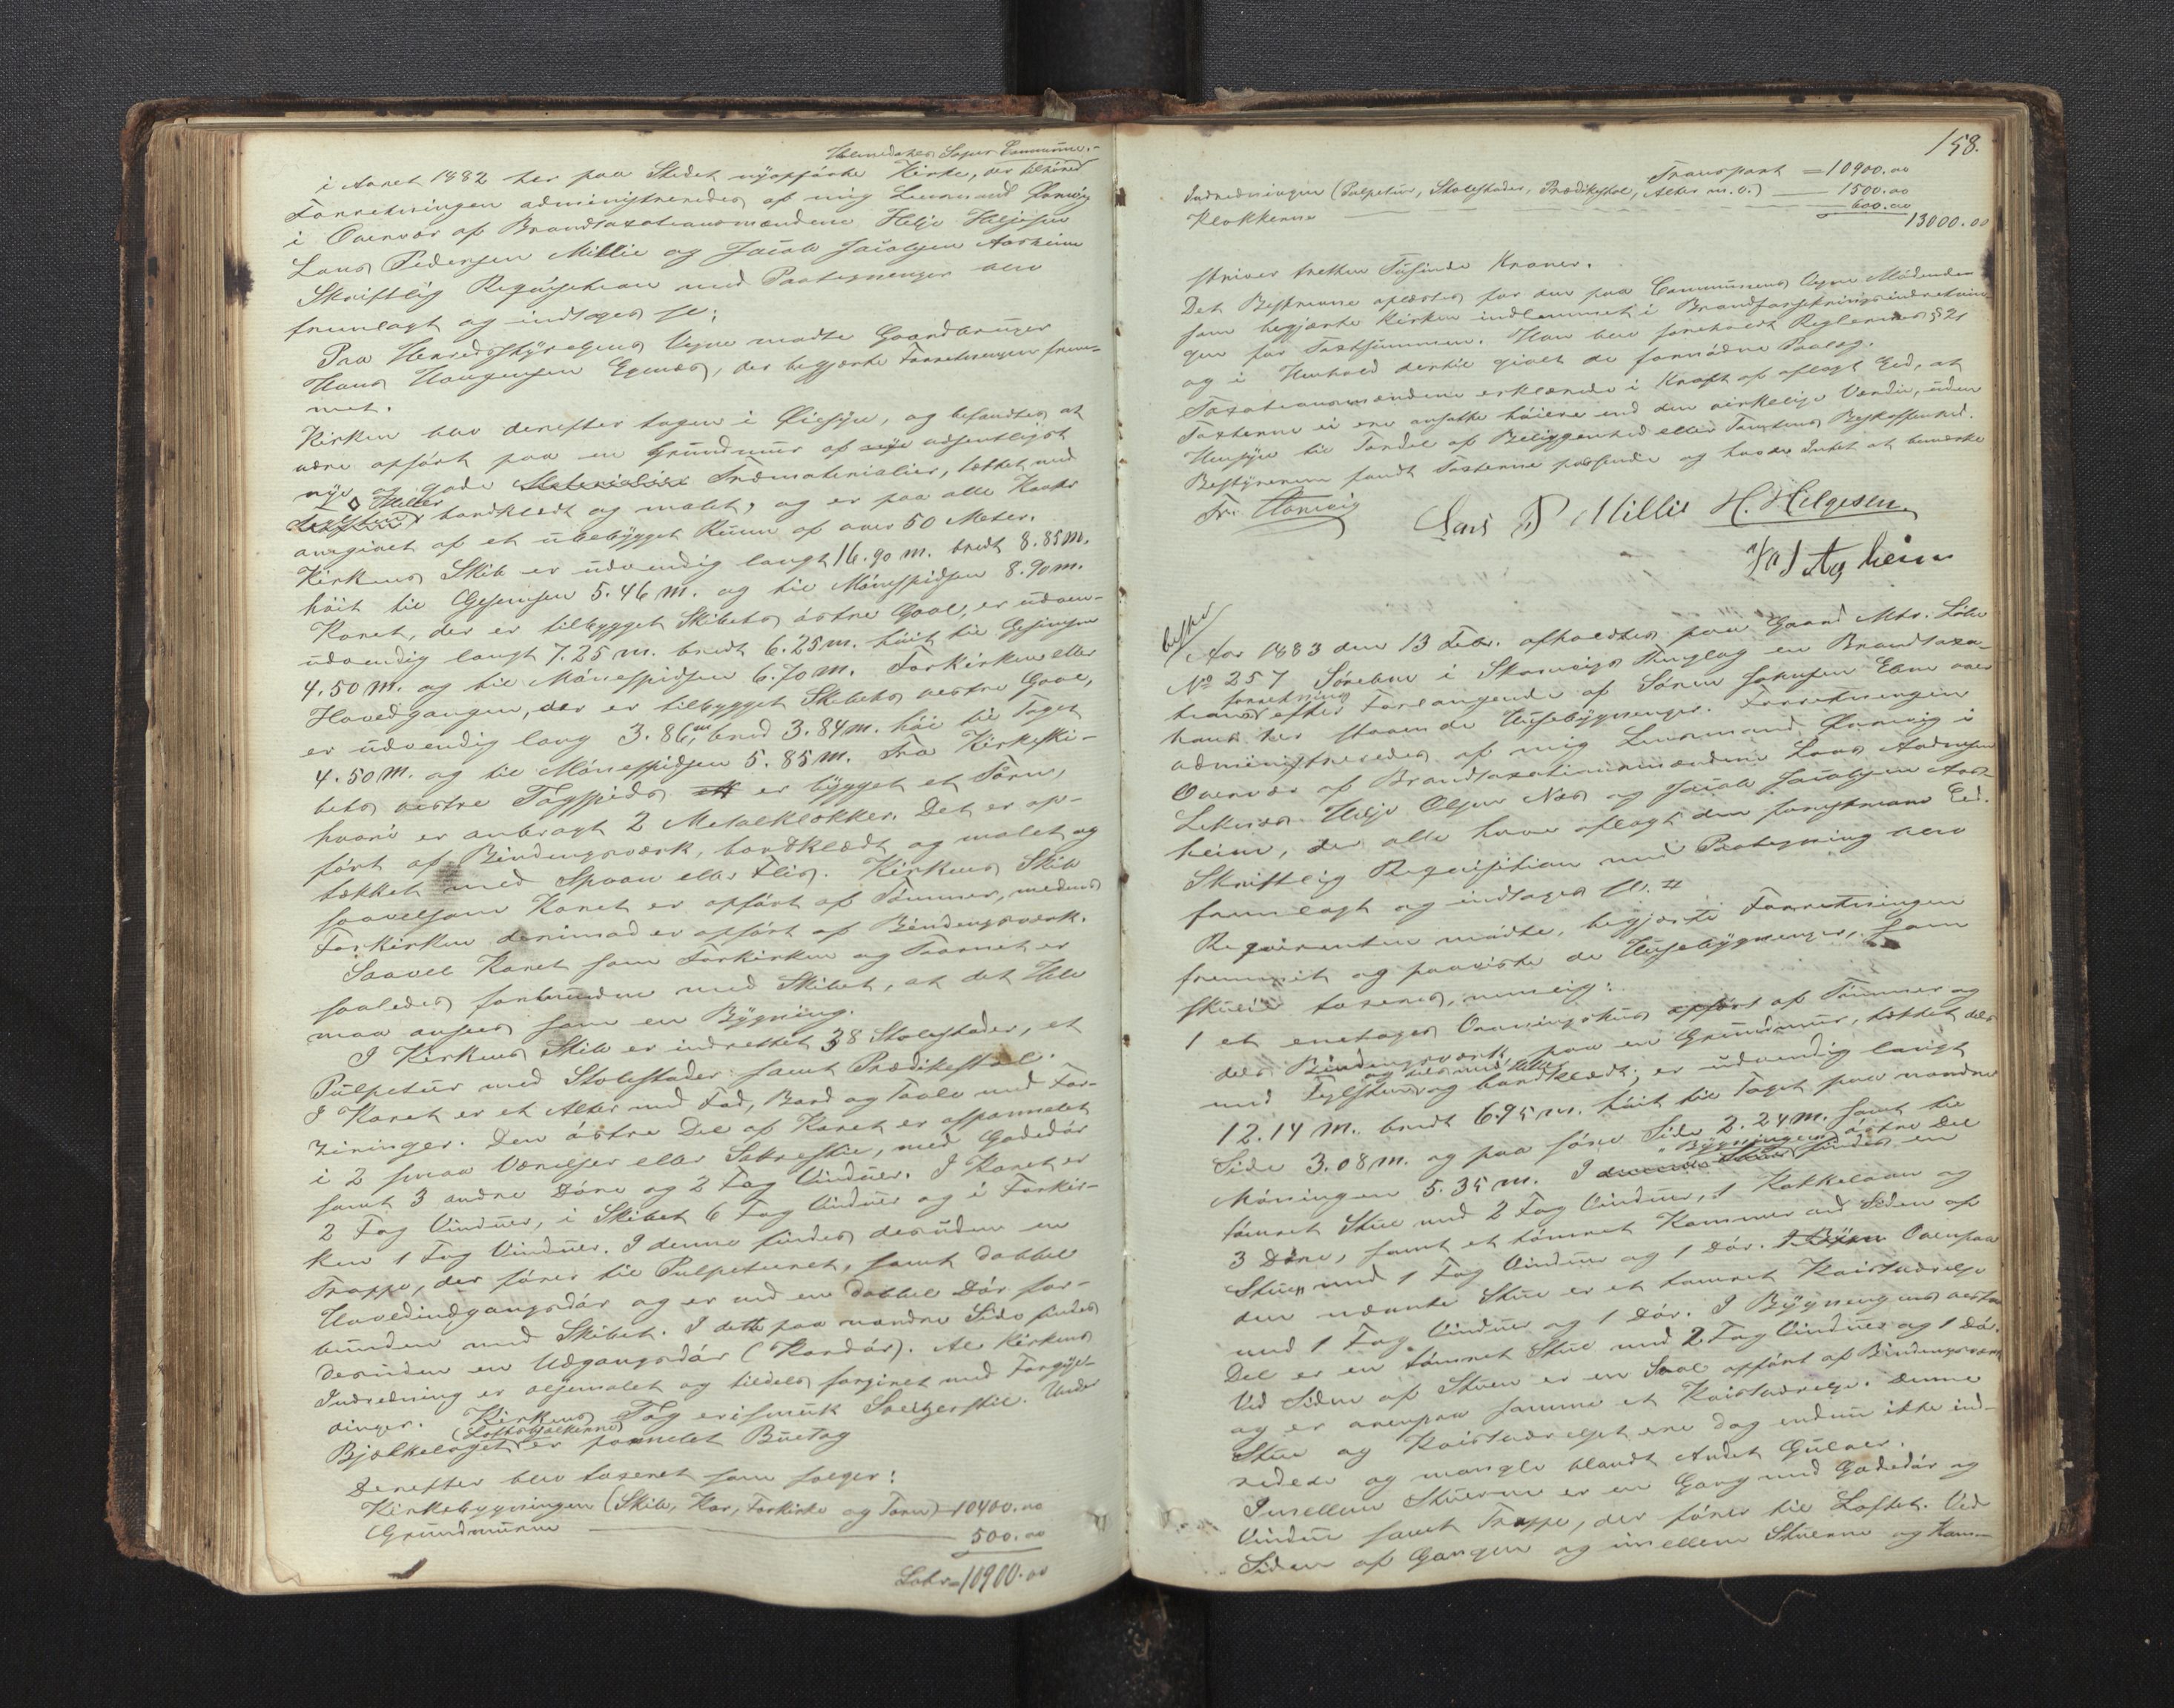 Communne.-
i Aaret 1882 her paa Stedet nyopförte Kirke, der tilhörer
Forretningen administreredes af mig Lensmand
i Overvær af Brandtaxationsmændene Helje Heljesen
Lars Pedersen Millie og Jacob Jacobsen Aarheim
Skriftlig Reqvisition med Paategninger blev
fremlagt og indtages se:
Paa Herredsstyrelsens Vegne mödte Gaardbruger
Hans Hansen, der begjærte Forretningen frem-
met.
Kirken blev derefter tagen i Öiesyn, og befandtes at
være opfört paa en Grundmuur af nye udsentligst
nye og gode Materialier Træmaterialier, tækket med
Heller
bordklædt og malet, og er paa alle Kanter
omgivet af et ubebygget Rum af over 50 Meter.
Kirkens Skib er udvendig langt 16.90 m. bredt 8.85 m.
höit til Gesimsen 5.46 m. og til Mönespidsen 8.90 m.
Koret, der er tilbygget Skibets östre Gavl, er udven-
udvendig langt 7.25 m. bredt 6.25 m. höit til Gesimsen
4.50 m. og til Mönespidsen 6.70 m. Forkirken eller
Hovedgangen, der er tilbygget Skibets vestre Gavl,
er udvendig lang 3.86 m, bred 3.84 m. höi til Taget
4.50 m. og til Mönespidsen 5.85 m. Fra Kirkeski-
bets vestre Tagspids er bygget et Tårn,
hvori er anbragt 2 Metalklokker. Det er op-
fört af Bindingsværk, bordklædt og malet og
tækket med Spaan eller Flis. Kirkens Skib
saavelsom Koret er opfört af Tömmer, medens
Forkirken derimod er opfört af Bindingsværk.
Saavel Koret som Forkirken og Taarnet er
saaledes forbundne med Skibet, at det Hele
maa ansees som en Bygning.
I Kirkens Skib er indrettet 38 Stolestader, et
Pulpetur med Stolestader samt Prædikestol.
I Koret er et Alter med Fod, Bord og Tavle med For-
ziringer. Den östre Del af Koret er afpannelet
i 2 smaa Værelser eller Sakrestie, med Gadedör
samt 3 andre Döre og 2 Fag Vinduer. I Koret er
2 Fag Vinduer, i Skibet 6 Fag Vinduer og i Forkir-
ken 1 Fag Vinduer. I denne findes desuden en
Trappe, der förer til Pulpeturet, samt dobbel
Hovedindgangsdör og er ved en dobbel Dör for-
bunden med Skibet. I dette paa nordre Side findes
desuden en Udgangsdör (Kordör). Al Kirkens
Indredning er oljemalet og tildels forsiret med Forgyl-
dinger. Kirkens Tag er i smuk Sveitzerstil. Under
(Loftsbjælkerne)
Bjælkelaget er pannelet Buetag
Derefter blev taxeret som følger:
Kirkebygningen (Skib, Kor, Forkirke og Tårn) 10400.00
Grundmuren 500.00
Lat. 10900.00
158.
Transport = 10900.00
Indredningen (Pulpetur, Stolestader, Prædikestol, Alter m.v.) 1500.00
Klokkerne 600.00
13000.00
skriver tretten Tusinde Kroner.
Det Beskrevne oplæstes for den paa Communens Vegne Mödende
som begjærte Kirken indlemmet i Brandforsikringsindretnin
gen for Taxtsummen. Han blev foreholdt Reglernes § 21
og i Henhold dertil gjort de fornödne Paalæg.
Taxationsmændene erklærede i Kraft af aflagt Eed, at
Taxterne ei ere ansatte höiere end den virkelige Værdie, uden
Hensyn til Fordel af Beliggenhed eller Tomtens Beskaffenhed.
Bestyreren fandt Taxterne passende og havde Intet at bemærke
Lars P Millie H. Helgesen
Aar 1883 den 13 Febr. afholdtes paa Gaard Mtr. Löbe
No 257 Sörebö i Thinglag en Brandtaxa-
forretning
tions efter Forlangende af Sören Johnsen over
hans her staaende Husebygninger. Forretningen
administreredes af mig Lensmand i
Overvær af Brandtaxationsmændene Lars Andersen
Helje Olsen Næs og Jacob Jacobsen Aar-
heim, der alle have aflagt den foreskrevne Eed.
Skriftlig Reqvisition med Paategning blev
fremlagt og indtages
Reqvirenten mödte, begjærte Forretningen
fremmet og paaviste de Husebygninger, som
skulle taxeres, nemlig:
1 et enetages Vaaningshus opfört af Tömmer og
dels Bindingsværk paa en Grundmuur, tækket dels
og dels med Heller
med Teglsten og bordklædt, er udvendig langt
12.14 m. bredt 6.95 m. höit til Taget paa nordre
Side 3.08 m. og paa söre Side 2.24 m. samt til
Möningen 5.35 m. I Bygningens östre Del
findes en
tömret Stue med 2 Fag Vinduer, 1 Kakkelovn og
3 Döre, samt et tömret Kammer ved Siden af
Stuen med 1 Fag Vinduer og 1 Dör. Ovenpaa
den nævnte Stue er et tömret Kvistværelse
med 1 Fag Vinduer og 1 Dör. I Bygningens vestre
Del er en tömret Stue med 2 Fag Vinduer og 1 Dör.
Ved Siden af Stuen er en Sval opfört af Bindingsværk
og er ovenpaa samme et Kvistværelse. Denne
Stue og Kvistværelset ere dog endnu ikke ind-
redede og mangle blandt Andet Gulver.
Imellem Stuerne er en Gang med Gadedör og
Vindue samt Trappe, der förer til Loftet. Ved
Siden af Gangen og imellem Stuerne og Kam-